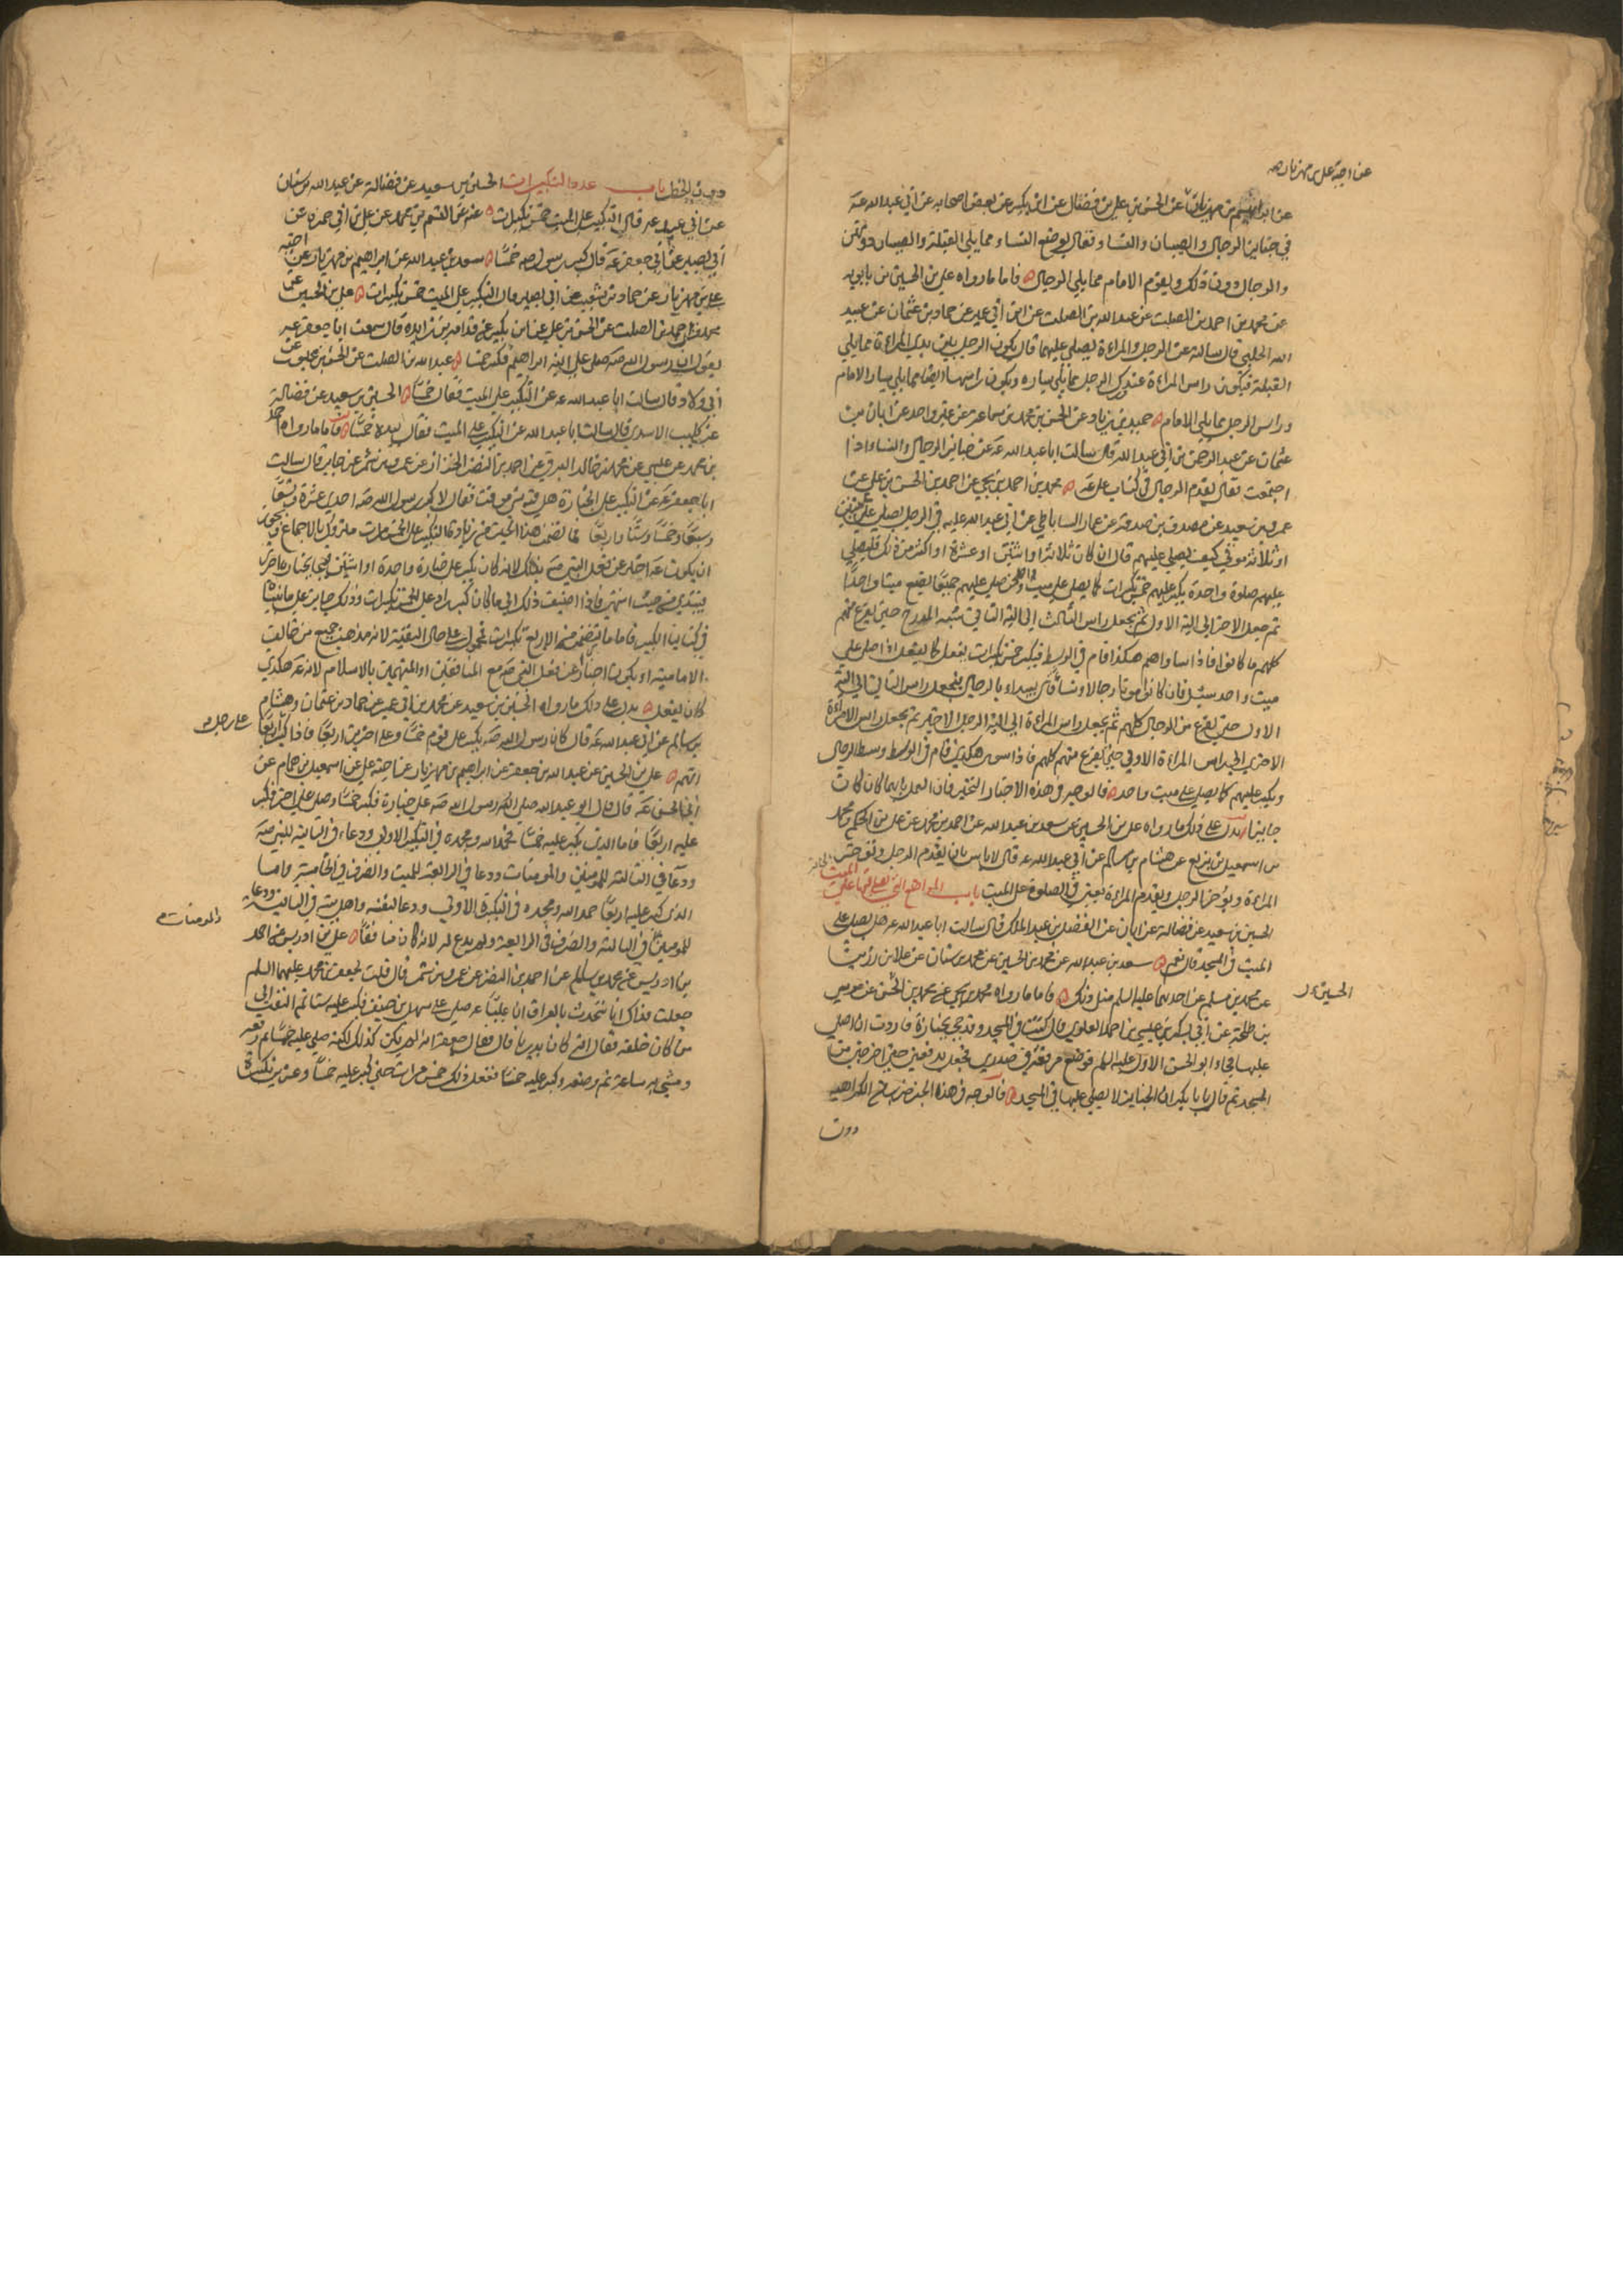 عن اخيه علي بن مهزيار صه
عن ابراهيم بن مهزيار عن الحسن بن علي بن فضال عن ابن بكير عن بعض اصحابه عن ابي عبد الله عه
في جنايز الرجال والصبيان والنساء فقال يوضع النساء مما يلي القبلة والصبيان دونهن
والرجال دون ذلك ويقوم الامام مما يلي الرجال فاما ما رواه علي بن الحسين بن بابويه
عن محمد بن احمد بن الصلت عن عبد الله بن الصلت عن ابن ابي عمير عن حماد بن عثمان عن عبيد
الله الحلبي قال سالته عن الرجل والمراءة يصلى عليهما قال يكون الرجل بين يدي المراءة مما يلي
القبلة فيكون راس المراءة عند ورك الرجل مما يلي يساره ويكون راسها ايضا مما يلي يسار الامام
وراس الرجل مما يلي الامام حميد بن زياد عن الحسن بن محمد بن سماعة عن غير واحد عن ابان بن
عثمان عن عبد الرحمن بن ابي عبد الله قال سالت ابا عبد الله عه عن جنايز الرجال والنساء اذا
اجتمعت فقال يقدم الرجال في كتاب علي عه محمد بن احمد بن يحيى عن احمد بن الحسن بن علي عن
عمرو بن سعيد عن مصدق بن صدقة عن عمار الساباطي عن ابي عبد الله عليه في الرجل يصلي على ميتين
او ثلاثة موتى كيف يصلي عليهم قال ان كان ثلاثة او اثنين او عشرة او اكثر من ذلك فليصلي
عليهم صلوة واحدة يكبر عليهم خمس تكبيرات كما يصلي على ميت واحد ومن صلى عليهم جميعا يضع ميتا واحدا
ثم يجعل الاخر الى الية الاول ثم يجعل راس الثالث الى الية الثاني شبه المدرج حتى يفرغ منهم
كلهم ما كانوا فاذا ساواهم هكذا قام في الوسط فيكبر خمس تكبيرات يفعل كما يفعل اذا صلى على
ميت واحد سئل فان كانوا موتا رجالا ونساء قال يبداء بالرجال فيجعل راس الثاني الى الية
الاول حتى يفرغ من الرجال كلهم ثم يجعل راس المراءة الى الية الرجل الاخير ثم يجعل راس الامراءة
الاخرى الى راس المراءة الاولى حتى يفرغ منهم كلهم فاذا سوى هكذى قام في الوسط وسط الرجال
ويكبر عليهم كما يصلي على ميت واحد فالوجه في هذه الاخبار التخيير فان العمل بايهما كان كان
جايزا يدل على ذلك ما رواه علي بن الحسين عن سعد بن عبد الله عن احمد بن محمد عن علي بن الحكم ومحمد
بن اسمعيل بن بزيع عن هشام بن سالم عن ابي عبد الله عه قال لا باس بان يقدم الرجل وتوخر
المراءة ويؤخر الرجل ويقدم المراءة يعني في الصلوة على الميت باب المواضع التي يصلى فيها على الجنايز
الحسين بن سعيد عن فضالة عن ابان عن الفضل بن عبد الملك قال سالت ابا عبد الله عه هل يصلى على
الميت في المسجد قال نعم سعد بن عبد الله عن محمد بن الحسين عن محمد بن سنان عن علا بن رزين
عن محمد بن مسلم عن احدهما عليه السلم مثل ذلك فاما ما رواه محمد بن يحيى عن محمد بن الحسن عن موسى
الحسين
بن طلحة عن ابي بكر بن عيسى بن احمد العلوي قال كنت في المسجد وقد جيء بجنازة فاردت ان اصلي
عليها فجاء ابو الحسن الاول عليه السلم فوضع مرفقه في صدري فجعل يدفعني حتى اخرجني من
المسجد ثم قال يا با بكر ان الجنايز لا يصلى عليها في المسجد فالوجه في هذه الخبر ضرب من الكراهية
دون
دون الحظر باب عدد التكبيرات الحسين بن سعيد عن فضالة عن عبد الله بن سنان
عن ابي عبد الله عه قال التكبير على الميت خمس تكبيرات عنه عن القسم بن محمد عن علي بن ابي حمزة عن
ابي بصير عن ابي جعفر عه قال كبر رسول الله صه خمسا سعد بن عبد الله عن ابراهيم بن مهزيار عن اخيه
علي بن مهزيار عن حماد بن شعيب عن ابي بصير قال التكبير على الميت خمس تكبيرات علي بن الحسين عن
محمد بن احمد بن الصلت عن الحسن بن علي عن ابن بكير عن قدامة بن زايدة قال سمعت ابا جعفر عه
يقول ان رسول الله صه صلى على ابنه ابراهيم فكبر خمسا عبد الله بن الصلت عن الحسن بن محبوب عن
ابي ولاد قال سالت ابا عبد الله عه عن التكبير على الميت فقال خمسا الحسين بن سعيد عن فضالة
عن كليب الاسدي قال سالت ابا عبد الله عن التكبير على الميت فقال بيده خمسا فاما ما رواه احمد
بن محمد بن عيسى عن محمد بن خالد البرقي عن احمد بن النضر الخزاز عن عمرو بن شمر عن جابر قال سالت
ابا جعفر عه عن التكبير على الجنازة هل فيه شئ موقت فقال لا كبر رسول الله صه احدى عشرة وتسعا
وسبعا وخمسا وستا واربعا فما تضمن هذا الحديث من زيادة التكبير على الخمس مرات متروك بالاجماع ويجوز
ان يكون عه اخبر عن فعل النبي صه بذلك لانه كان يكبر على جنازة واحدة او اثنين فيجي بجنازة اخرى
فيبتدي من حيث انتهى فاذا اضيفت ذلك الى ما كان كبر زاد على الخمس تكبيرات وذلك جايز على ما بيناه
في كتابنا الكبير فاما ما يتضمن من الاربع تكبيرات فمحمول على حال التقية لانه مذهب جميع من خالف
الامامية او يكون اخبار عن فعل النبي صه مع المنافقين او المتهمين بالاسلام لانه عه هكذى
كان يفعل يدل على ذلك ما رواه الحسين بن سعيد عن محمد بن ابي عمير عن حماد بن عثمان وهشام
بن سالم عن ابي عبد الله عه قال كان رسول الله صه يكبر على قوم خمسا وعلى اخرين اربعا فاذا كبر اربعا
على رجل
اتهم علي بن الحسين عن عبد الله بن جعفر عن ابراهيم بن مهزيار عن اخيه علي عن اسمعيل بن همام عن
ابي الحسن عه قال قال ابو عبد الله صلى الله رسول الله صه على جنازة فكبر خمسا وصلى على اخر فكبر
عليه اربعا فاما الذي كبر عليه خمسا فحمد الله ومجده في التكبير الاولى ودعاء في الثانية للنبي صه
ودعا في الثالثة للمومنين والمومنات ودعا في الرابعة للميت وانصرف في الخامسة واما
الذي كبر عليه اربعا حمد الله ومجده في التكبيرة الاولى ودعا لنفسه واهل بيته في الثانية ودعا
للمومنين في الثالثة وانصرف في الرابعة ولم يدع له لانه كان منافقا علي بن ادريس عن احمد
والمومنات
بن ادريس عن محمد بن سالم عن احمد بن النضر عن عمرو بن شمر قال قلت لجعفر بن محمد عليهما السلم
جعلت فداك انا نتحدث بالعراق ان عليا عه صلى على سهل بن حنيف فكبر عليه ستا ثم التفت الى
من كان خلفه فقال انه كان بدريا قال فقال جعفر انه لم يكن كذلك لكنه صلى عليه خمسا ثم رفعه
ومشى به ساعة ثم وضعه وكبر عليه خمسا ففعل ذلك خمس مرات حتى كبر عليه خمسا وعشرين تكبيرة